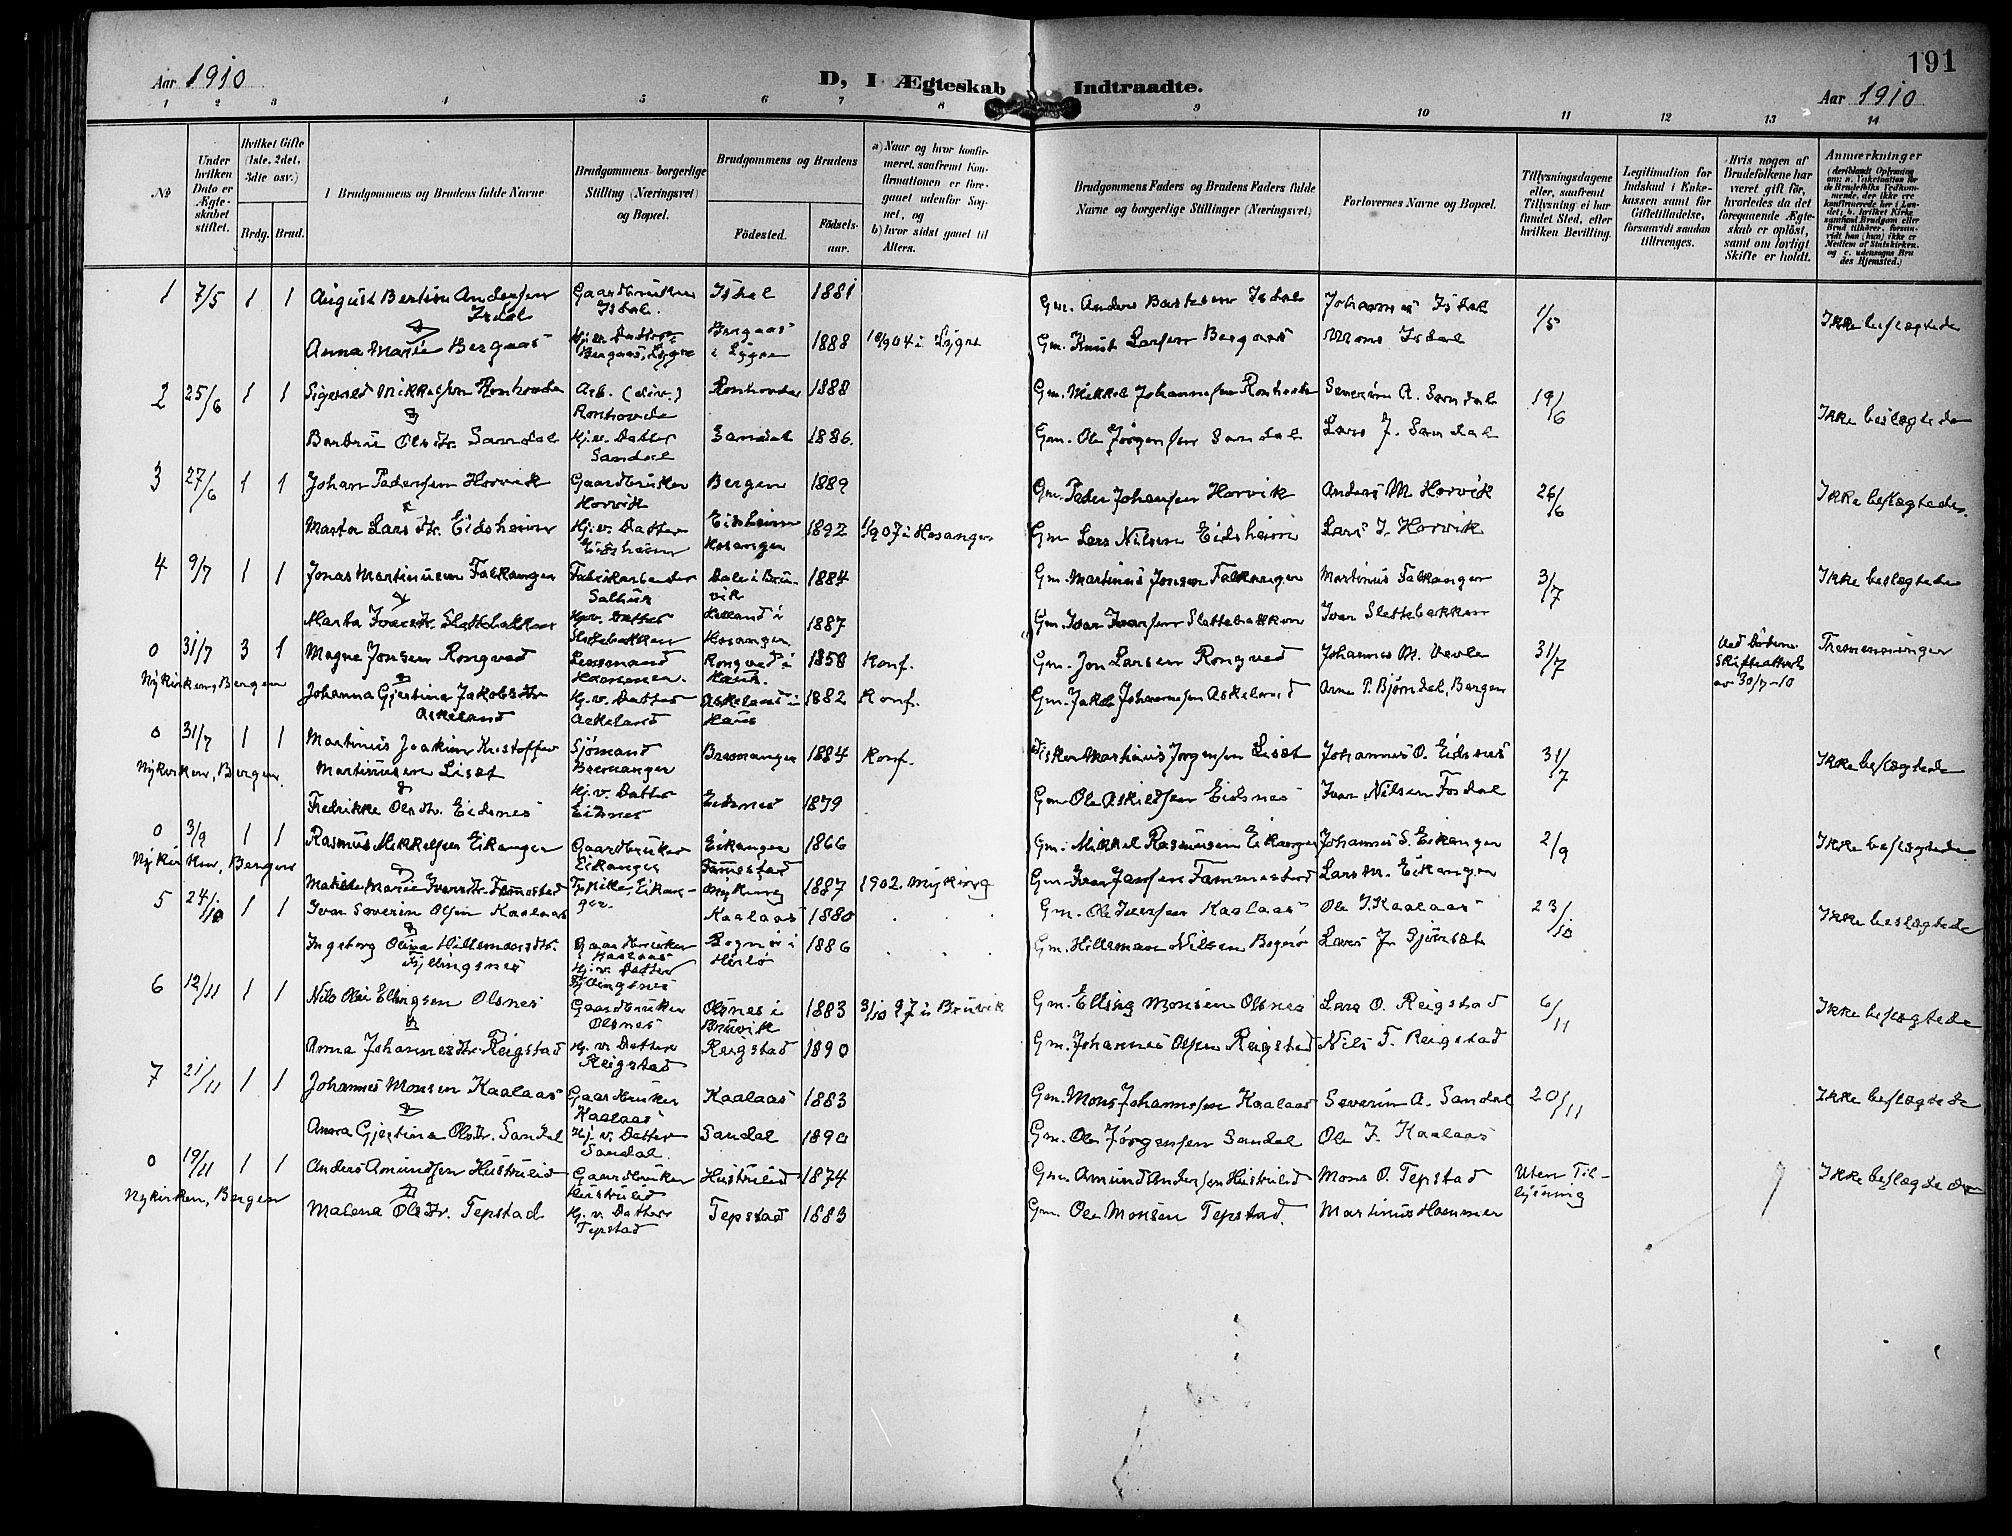 191
Aar 1910
D, I Ægteskab Indtraadte.
Aar 1910
1 2 3 4 5 6 7 8 9 10 11 12 13 14
No
Under hvilken Dato er Ægteskabet stiftet.
Hvilket Gifte (1ste, 2det, 3die osv.)
Brdg. Brud.
Brudgommens og Brudens fulde Navne
Brudgommens borgerlige Stilling (Næringsvei) og Bopæl.
Brudgommens og Brudens
Fødested.
Fødselsaar.
a) Naar og hvor konfirmeret, saafremt Konfirmationen er foregaaet udenfor Sognet, og
b) hvor sidst gaaet til Alters.
Brudgommens Faders og Brudens Faders fulde Navne og borgerlige Stillinger (Næringsvei)
Forlovernes Navne og Bopæl.
Tillysningsdagene eller, saafremt Tillysning ei har fundet Sted, efter hvilken Bevilling.
Legitimation for Indskud i Enkekassen samt for Giftetilladelse, forsaavidt saadan tiltrænges.
Hvis nogen af Brudefolkene har været gift før, hvorledes da det foregaaende Ægteskab er opløst, samt om lovligt Skifte er holdt.
Anmærkninger
1 7/5 1 1 August Bertin Andersen Isdal Gaardbruker Isdal. Isdal 1881 Gm. Anders Isdal Johannes Isdal 1/5 Ikke beslægtede
Anna Marie Bergaas Hj.v. Datter Bergaas, Lygre Bergaas i Lygre 1888 904 i Lygre Gm. Knut Larsen Bergaas Mons Isdal
2 25/6 1 1 Sigvald Mikkelsen Ronhovde Arb. (div.) Ronhovde Ronhovde 1888 Gm. Mikkel Johannesen Ronhovde Severin A. Sandal 19/6 Ikke beslægtede
Olsdtr. Sandal Hj.v. Datter Sandal Sandal 1886. Gm. Ole Jørgensen Sandal Lars J. Sandal
3 27/6 1 1 Johan Pedersen Horvik Gaardbruker Horvik Bergen 1889 Gm. Peder Johansen Horvik Anders M. Horvik 26/6 Ikke beslægtede.
Marta Larsdtr. Eidsheim Hj.v. Datter Eidsheim Eidsheim Hosanger 1892 907 i Hosanger Gm. Lars Nilsen Eidsheim Lars I. Horvik
4 9/7 1 1 Jonas Martinusen Falkanger Fabrikarbeider Salhus Dale i Bruvik 1884 Gm. Martinus Jonsen Falkanger Martinus Falkanger 3/7 Ikke beslægtede
Marta Ivarsdtr. Slettebakken Hj.v. Datter Slettebakken i Hosanger 1887 Gm. Ivar Ivarsen Slettebakken Ivar Slettebakken
0 31/7 3 1 Magne Jonsen Rongved Lensmand Hammer. Rongved i Haus. 1858 Konf. Gm. Jon Larsen Rongved Johannes M. Vevle 31/7 Ved Døden. Skifteattest av 30/7-10 Tremenninger
Nykirken, Bergen
Johanna Gjertina Jakobsdtr Askeland Hj.v. Datter Askeland Askeland i Haus 1882 Konf. Gm. Jakob Johannesen Askeland Arne P. Bjørndal, Bergen
0 31/7 1 1 Martinus Joakim Kristoffer Martinusen Liset Sjømand Bremanger Bremanger 1884 Konf. Fisker Martinus Jørgensen Liset Johannes O. Eidsnes 31/7 Ikke beslægtede
Nykirken, Bergen.
Fredrikke Olsdtr. Eidsnes Hj.v. Datter Eidsnes Eidsnes 1879 Gm. Ole Eidsnes Ivar Nilsen Fosdal
0 3/9 1 1 Rasmus Mikkelsen Eikanger Gaardbruker Eikanger Eikanger 1866 Gm. Mikkel Rasmusen Eikanger Johannes S. Eikanger 2/9 Ikke beslægtede.
Nykirken, Bergen
Marie Ivarsdtr. Fammestad Eikanger. Fammestad Myking 1887 1902. Myking Gm. Ivar Jansen Fammestad Lars M. Eikanger
5 24/10 1 1 Ivar Severin Olsen Kaalaas Gaardbruker Kaalaas Kaalaas 1880 Gm. Ole Iversen Kaalaas Ole I. Kaalaas 23/10 Ikke beslægtede
Ingeborg Olina Hillemansdtr. Fyllingsnes Hj.v. Datter Fyllingsnes Bognø i Herlø 1886 Gm. Hilleman Nilsen Bognø Lars Jr.
6 12/11 1 1 Nils Olai Ellingsen Olsnes Gaardbruker Olsnes Olsnes i Bruvik 1883 3/10 97 i Bruvik Gm. Elling Monsen Olsnes Lars O. Reigstad 6/11 Ikke beslægtede
Anna Johannesdtr. Reigstad Hj.v. Datter Reigstad Reigstad 1890 Gm. Johannes Olsen Reigstad Nils T. Reigstad
7 21/11 1 1 Johannes Monsen Kaalaas Gaardbruker Kaalaas Kaalaas 1883 Gm. Mons Johannesen Kaalaas Severin A. Sandal 20/11 Ikke beslægtede
Anna Gjertina Olsdtr. Sandal Hj.v. Datter Sandal. Sandal 1890 Gm. Ole Jørgensen Sandal Ole I. Kaalaas
0 19/11 1 1 Anders Amundsen Hustrulid Gaardbruker Hustrulid Hustrulid 1874 Gm. Amund Andersen Hustrulid Mons O. Tepstad Uten Tillysning Ikke beslægtede
Nykirken, Bergen
Malena Olsdtr. Tepstad Hj.v. Datter Tepstad Tepstad 1883 Gm. Ole Monsen Tepstad. Martinus Hammer